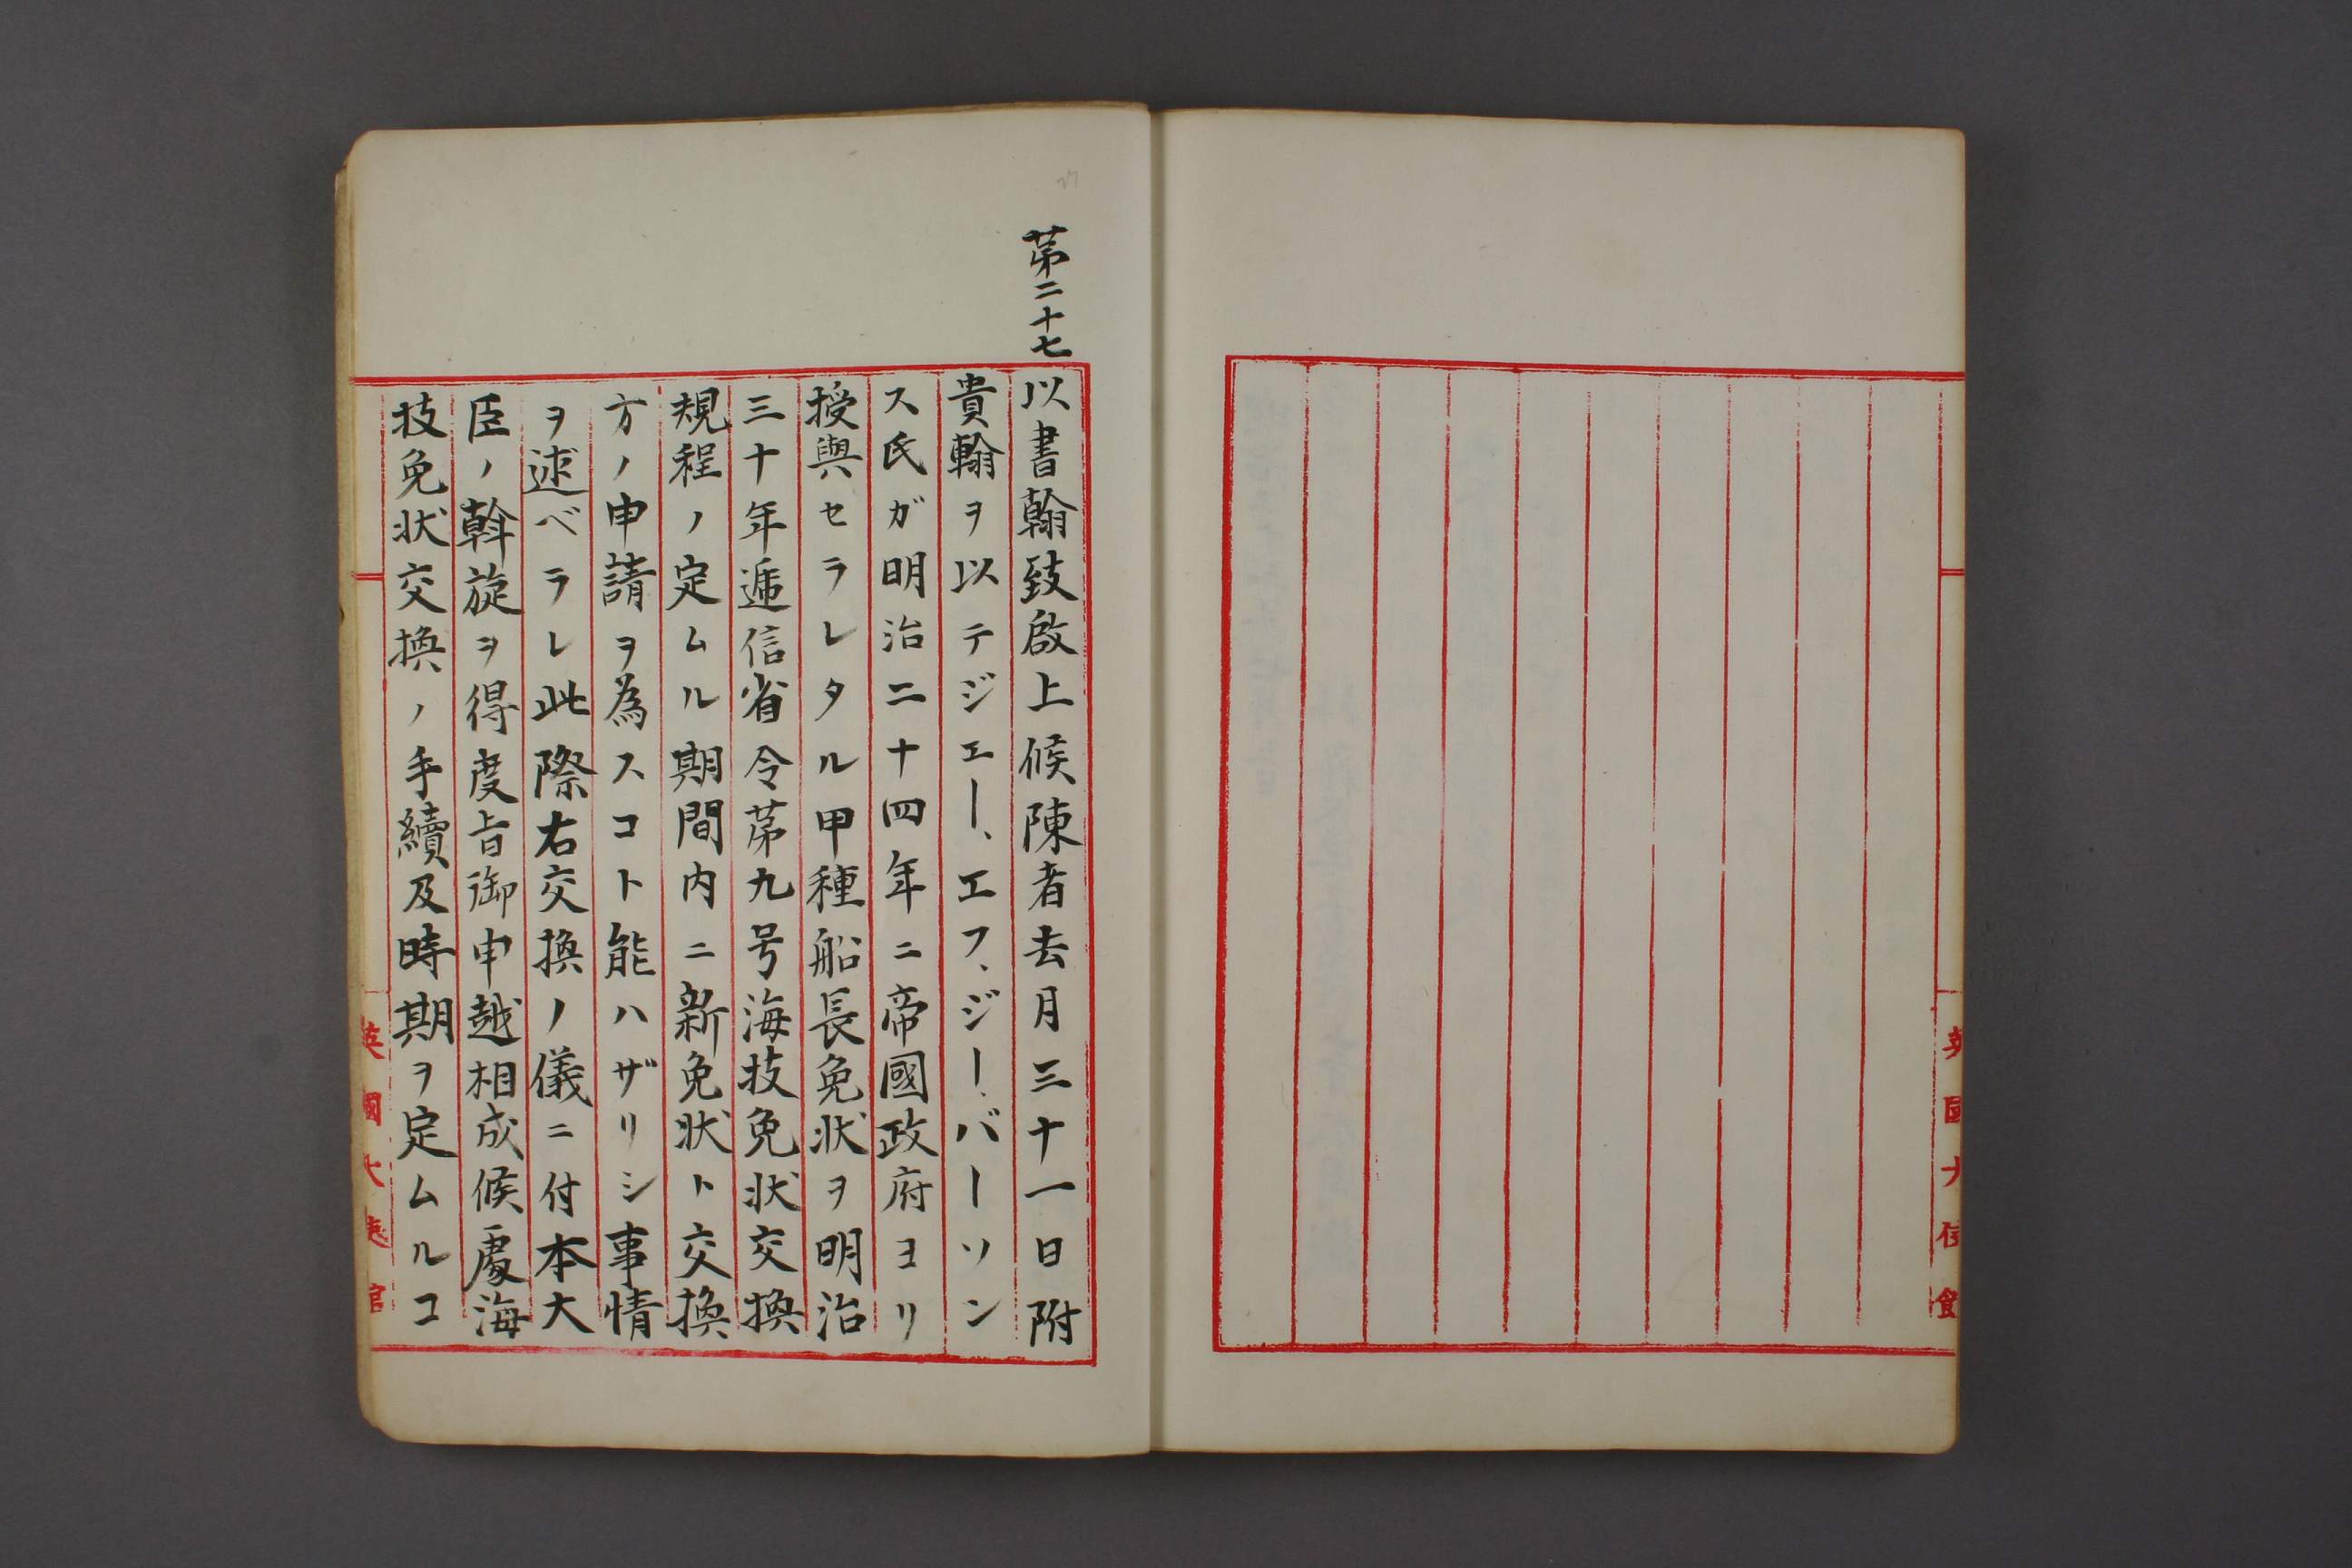 英國大使館
第二十七
以書翰致啟上候陳者去月三十一日附
貴翰ヲ以テジエー、エフ、ジー、バーソン
ス氏ガ明治二十四年ニ帝國政府ヨリ
授與セラレタル甲種船長免状ヲ明治
三十年逓信省令第九号海技免状交換
規程ノ定ムル期間内ニ新免状ト交換
方ノ申請ヲ為スコト能ハザリシ事情
ヲ述ベラレ此際右交換ノ儀ニ付本大
臣ノ斡旋ヲ得度旨御申越相成候處海
技免状交換ノ手續及時期ヲ定ムルコ
英國大使館